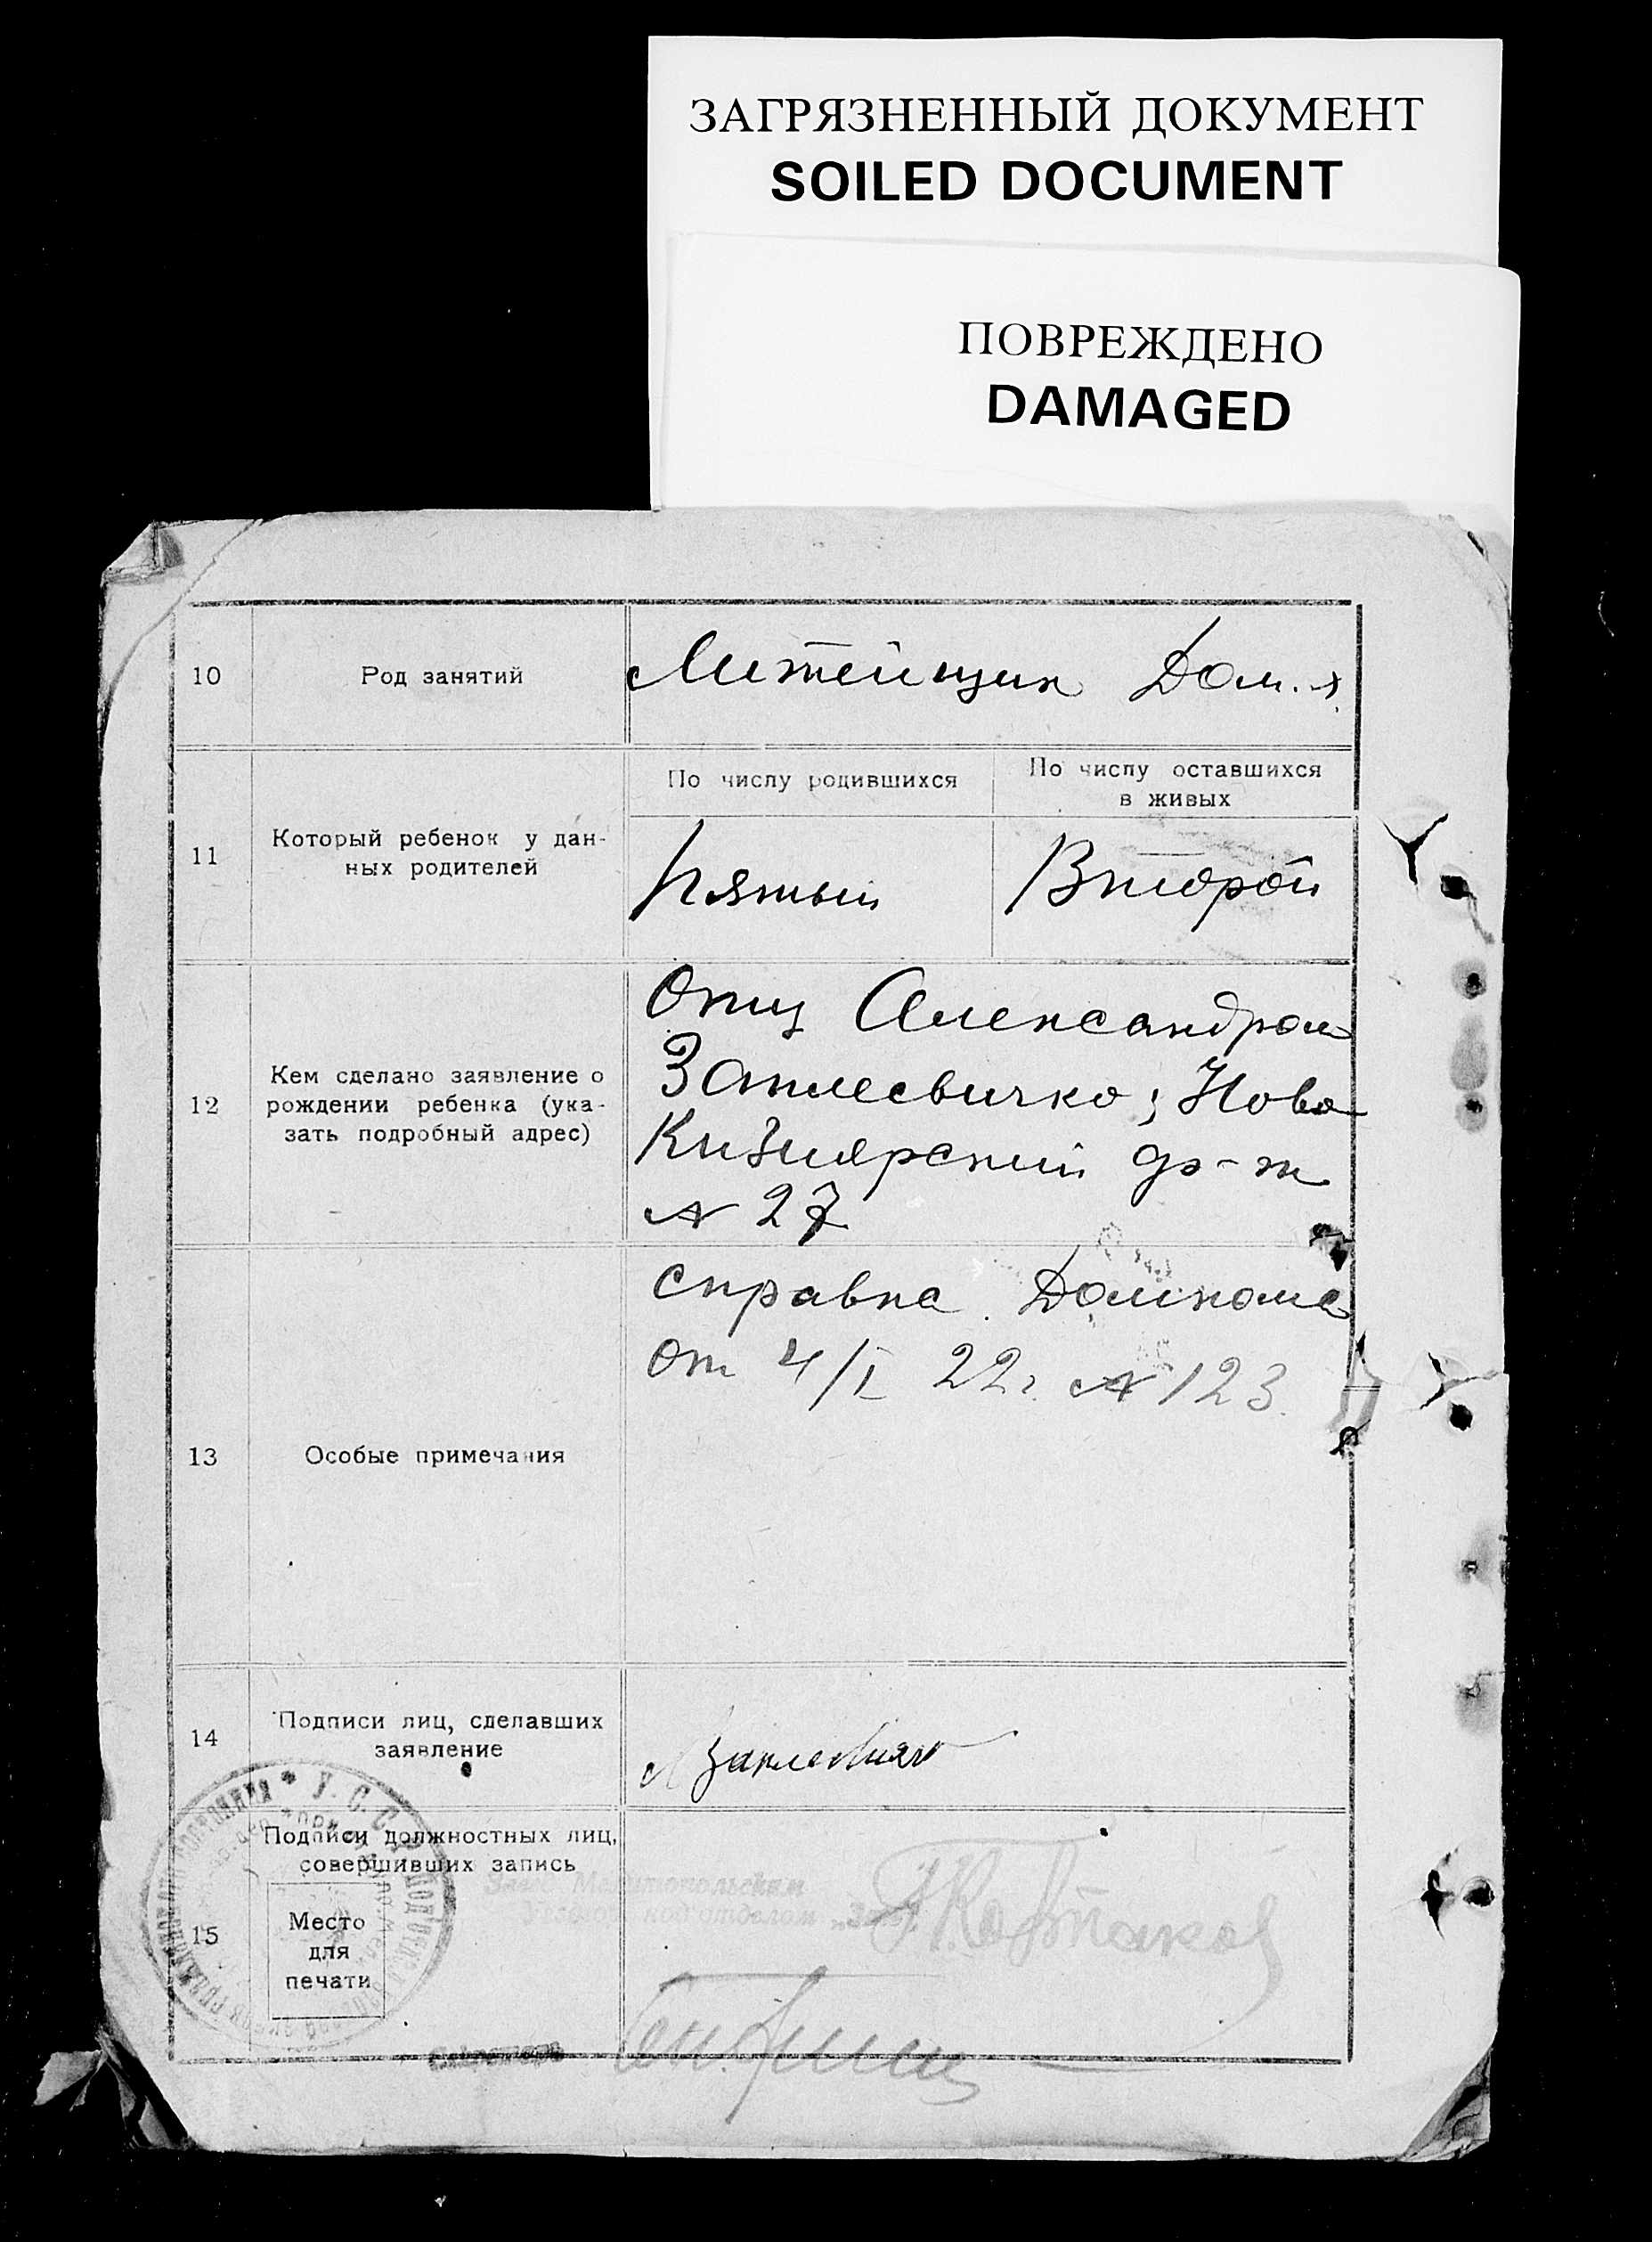 ЗАГРЯЗНЕННЫЙ ДОКУМЕНТ
SOILED DOCUMENT
ПОВРЕЖДЕНО
DAMAGED
10
Род занятий
Литейщик Дом. х.
11
Который ребенок у дан-
ных родителей
По числу родившихся
По числу оставшихся
в живых
Пятый
Второй
12
Кем сделано заявление о
рождении ребенка (ука-
зать подробный адрес)
Отц Александром
Затлесвичко; Ново
Кизиярский
№ 27
13
Особые примечания
справка Домкома
от 4/I 22 г. № 123.
14
Подписи лиц, сделавших
заявление
15
Подписи должностных лиц,
совершивших запись
Место
для
печати
У. С. С. Р.
Завед. Мелитопольским
подотделом
Секретарь